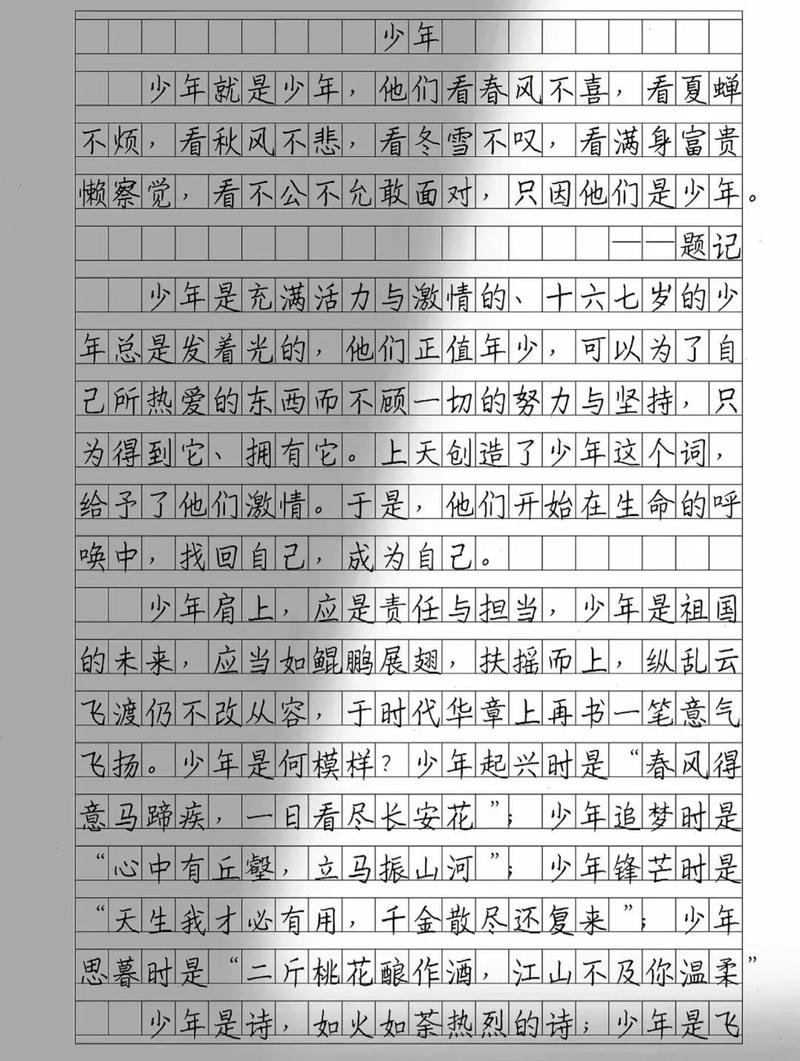 少年
少年就是少年，他们看春风不喜，看夏蝉
不烦，看秋风不悲，看冬雪不叹，看满身富贵
懒察觉，看不公不允敢面对，只因他们是少年。
——题记
少年是充满活力与激情的、十六七岁的少
年总是发着光的，他们正值年少，可以为了自
己所热爱的东西而不顾一切的努力与坚持，只
为得到它、拥有它。上天创造了少年这个词，
给予了他们激情。于是，他们开始在生命的呼
唤中，找回自己，成为自己。
少年肩上，应是责任与担当，少年是祖国
的未来，应当如鲲鹏展翅，扶摇而上，纵乱云
飞渡仍不改从容，于时代华章上再书一笔意气
飞扬。少年是何模样？少年起兴时是“春风得
意马蹄疾，一日看尽长安花”；少年追梦时是
“心中有丘壑，立马振山河”；少年锋芒时是
“天生我才必有用，千金散尽还复来”；少年
思暮时是“二斤桃花酿作酒，江山不及你温柔”
少年是诗，如火如荼热烈的诗；少年是飞